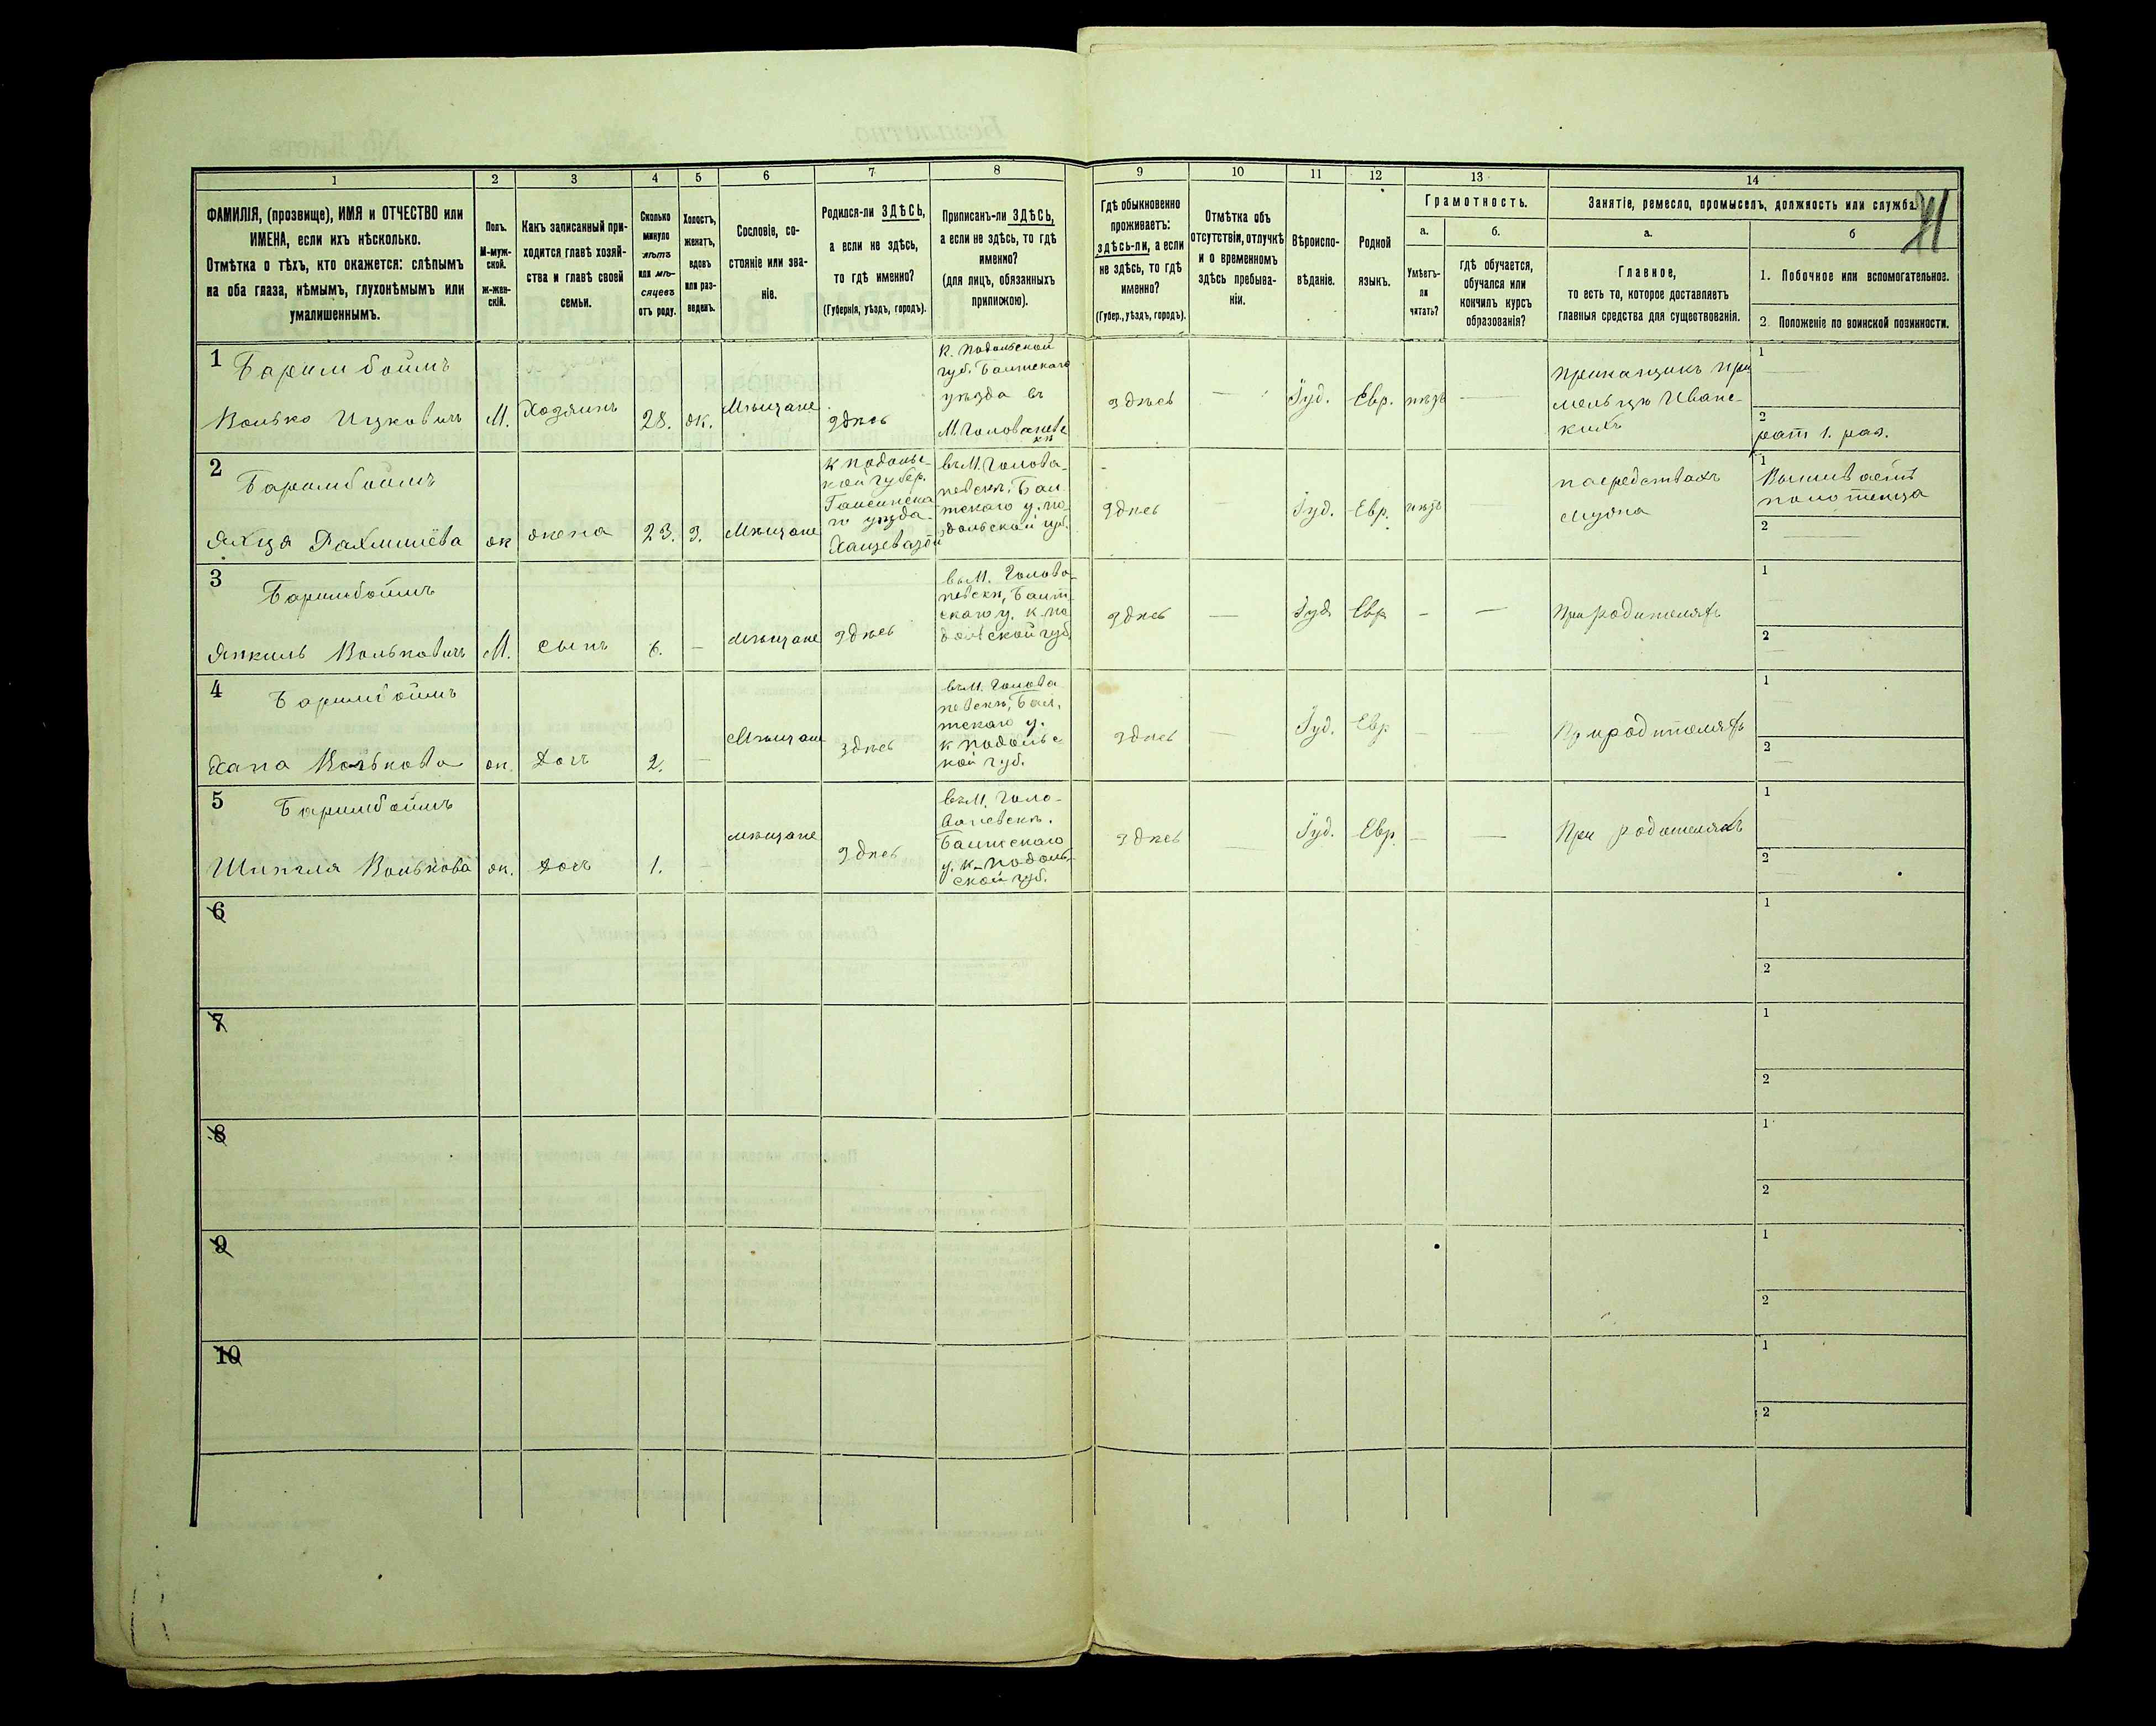 1 2 3 4 5 6 7 8 9 10 11 12 13 14
ФАМИЛІЯ, (прозвище), ИМЯ и ОТЧЕСТВО или
ИМЕНА, если ихъ нѣсколько.
Отмѣтка о тѣхъ, кто окажется: слѣпымъ
на оба глаза, нѣмымъ, глухонѣмымъ или
умалишеннымъ.
Полъ.
М-муж-
ской.
ж-жен-
скій.
Какъ записанный при-
ходится главѣ хозяй-
ства и главѣ своей
семьи.
Сколько
минуло
лѣтъ
или мѣ-
сяцевъ
отъ роду.
Холостъ,
женатъ,
вдовъ
или раз-
веденъ.
Сословіе, со-
стояніе или зва-
ніе.
Родился-ли ЗДѢСЬ,
а если не здѣсь,
то гдѣ именно?
(Губернія, уѣздъ, городъ).
Приписанъ-ли ЗДѢСЬ,
а если не здѣсь, то гдѣ
именно?
(для лицъ, обязанныхъ
припискою).
Гдѣ обыкновенно
проживаетъ:
здѣсь-ли, а если
не здѣсь, то гдѣ
именно?
(Губер., уѣздъ, городъ).
Отмѣтка объ
отсутствіи, отлучкѣ
и о временномъ
здѣсь пребыва-
ніи.
Вѣроиспо-
вѣданіе.
Родной
языкъ.
Грамотность.
а.
Умѣетъ-
ли
читать?
б.
гдѣ обучается,
обучался или
кончилъ курсъ
образованія?
Занятіе, ремесло, промыселъ, должность или служба.
а.
Главное,
то есть то, которое доставляетъ
главныя средства для существованія.
б
1. Побочное или вспомогательное.
2 Положеніе по воинской повинности.
1
Баримбоймъ
Волько Ицковичъ
М.
Хозяинъ
28.
ж.
Мѣщане
здѣсь
К. Подольской
губ. Балтскаго
уѣзда въ
М. Голованевс
кѣ
здѣсь
—
Іуд.
Евр.
нѣтъ
—
Приказчикъ при
1
2
рат 1. раз.
2
Баримбоймъ
ж
жена
23.
З.
Мѣщане
К подольс-
кой губер.
въ М. Голова-
невскѣ, Бал
тскаго у. по-
дольской губ.
здѣсь
Іуд.
Евр.
нѣтъ
—
на средствахъ
Мужа
1
Вышиваетъ
полотенца
2
3
Баримбоймъ
Янкиль Вольковичъ
М.
сынъ
6.
—
Мѣщане
здѣсь
въ М. Голова-
невскѣ, Балт
скаго у. к. по
дольской губ.
здѣсь
—
Іуд
Евр
—
—
При родителяхъ
1
2
4
Баримбоймъ
Хана Волькова
ж.
Дочь
2.
—
Мѣщане
здѣсь
въ М. Голова
невскѣ, Бал.
тскаго у.
к подольс
кой губ.
здѣсь
—
Іуд.
Евр
—
—
При родителяхъ
1
2
5
Баримбоймъ
Волькова
ж.
Дочь
1.
—
мѣщане
здѣсь
въ М. Голо-
ваневскѣ.
Балтскаго
у. к-подоль-
ской губ.
здѣсь
—
Іуд.
Евр.
—
—
При родителяхъ
1
2
6
1
2
7
1
2
8
1
2
9
1
2
10
1
2